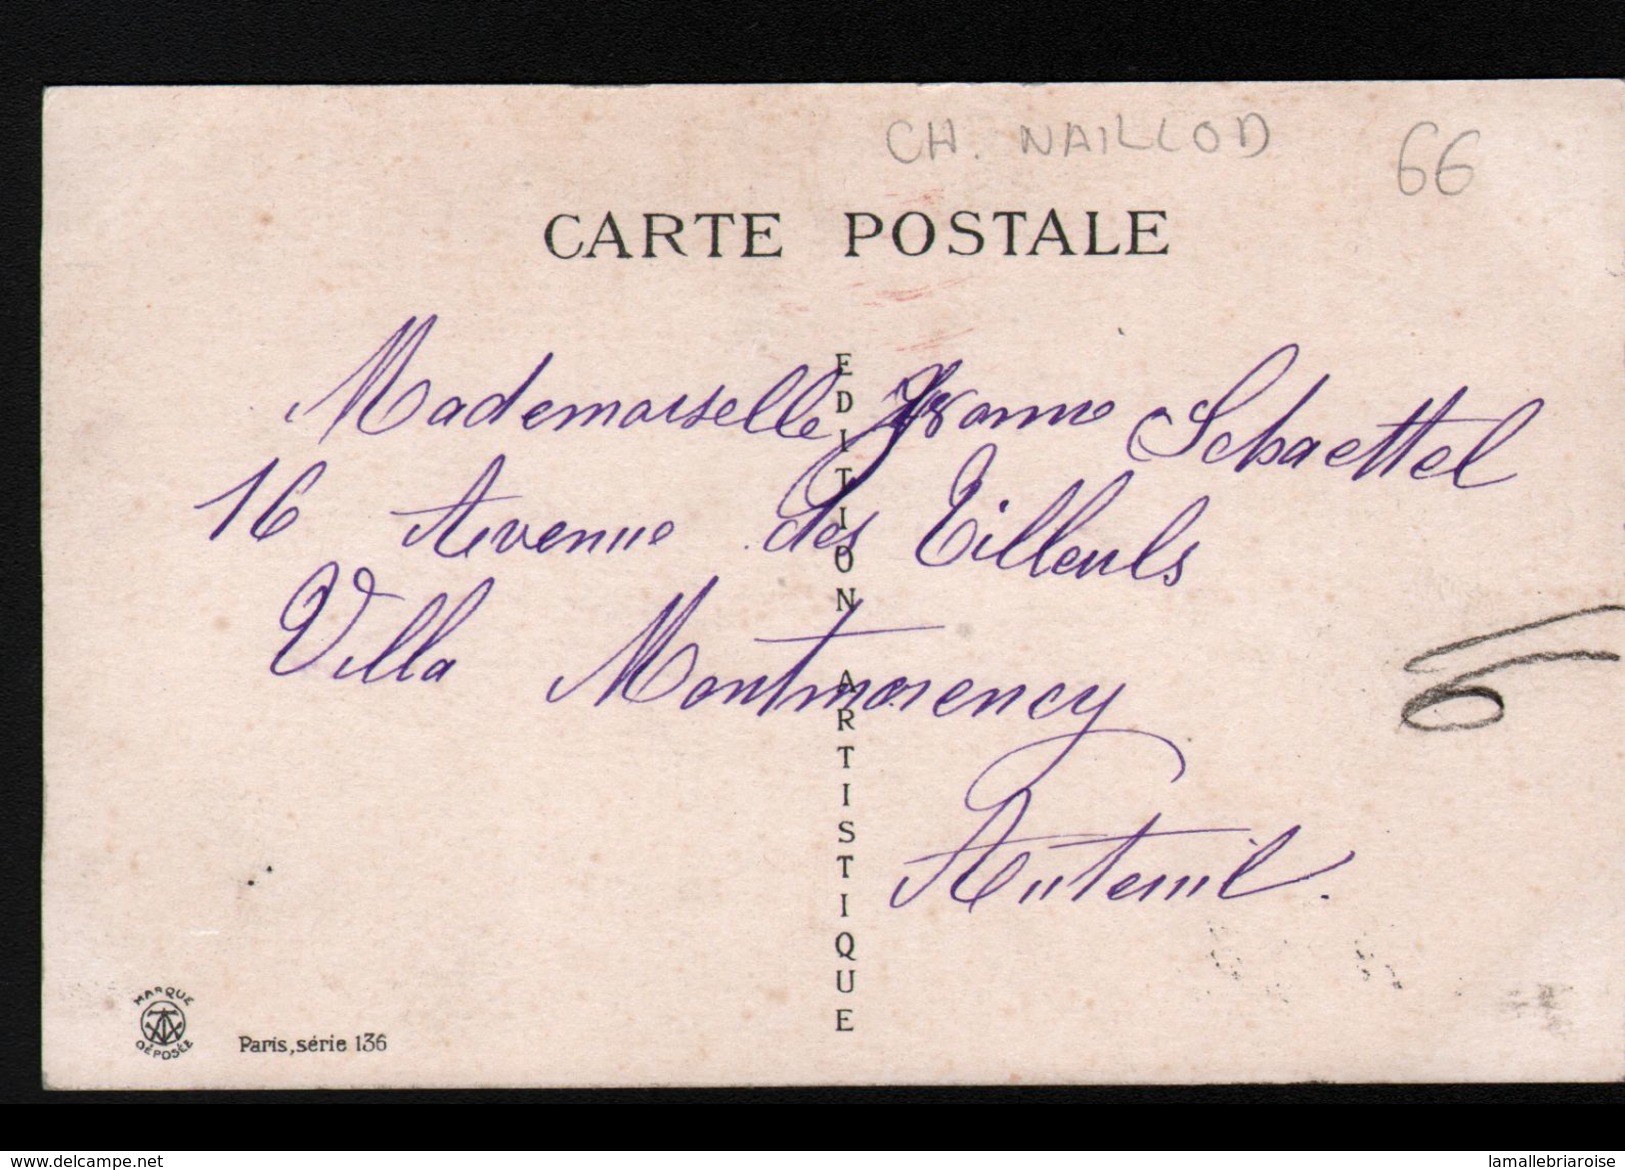 CH. NAILLOD
66
CARTE POSTALE
EDITION ARTISTIQUE
Mademoiselle Yvonne Schaettel
16 Avenue des Tilleuls
Villa Montmorency
Auteuil.
6
MARQUE
DÉPOSÉE
Paris, série 136
www.delcampe.net
lamallebriaroise